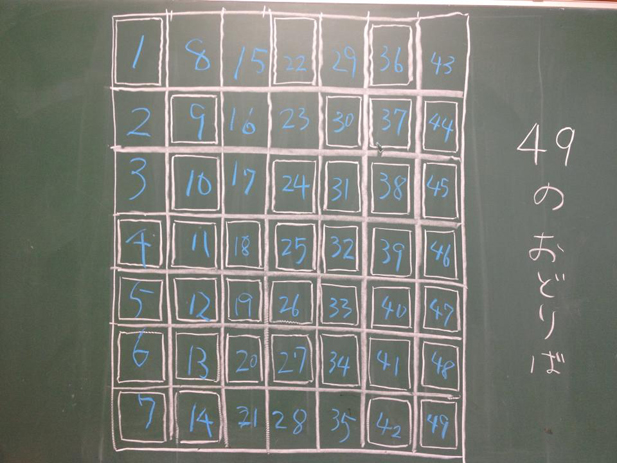 1 8 15 22 29 36 43
2 9 16 23 30 37 44
3 10 17 24 31 38 45
4 11 18 25 32 39 46
5 12 19 26 33 40 47
6 13 20 27 34 41 48
7 14 21 28 35 42 49
49のおどりば